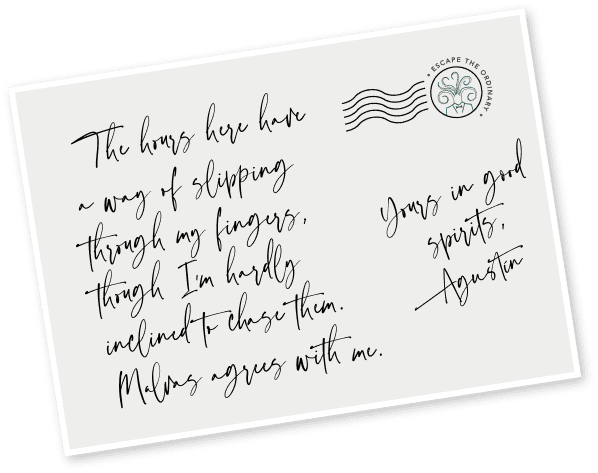 The hours here have
a way of slipping
through my fingers,
though I'm hardly
inclined to chase them.
Malvas agrees with me.
• ESCAPE THE ORDINARY •
Yours in good
spirits,
Agustín